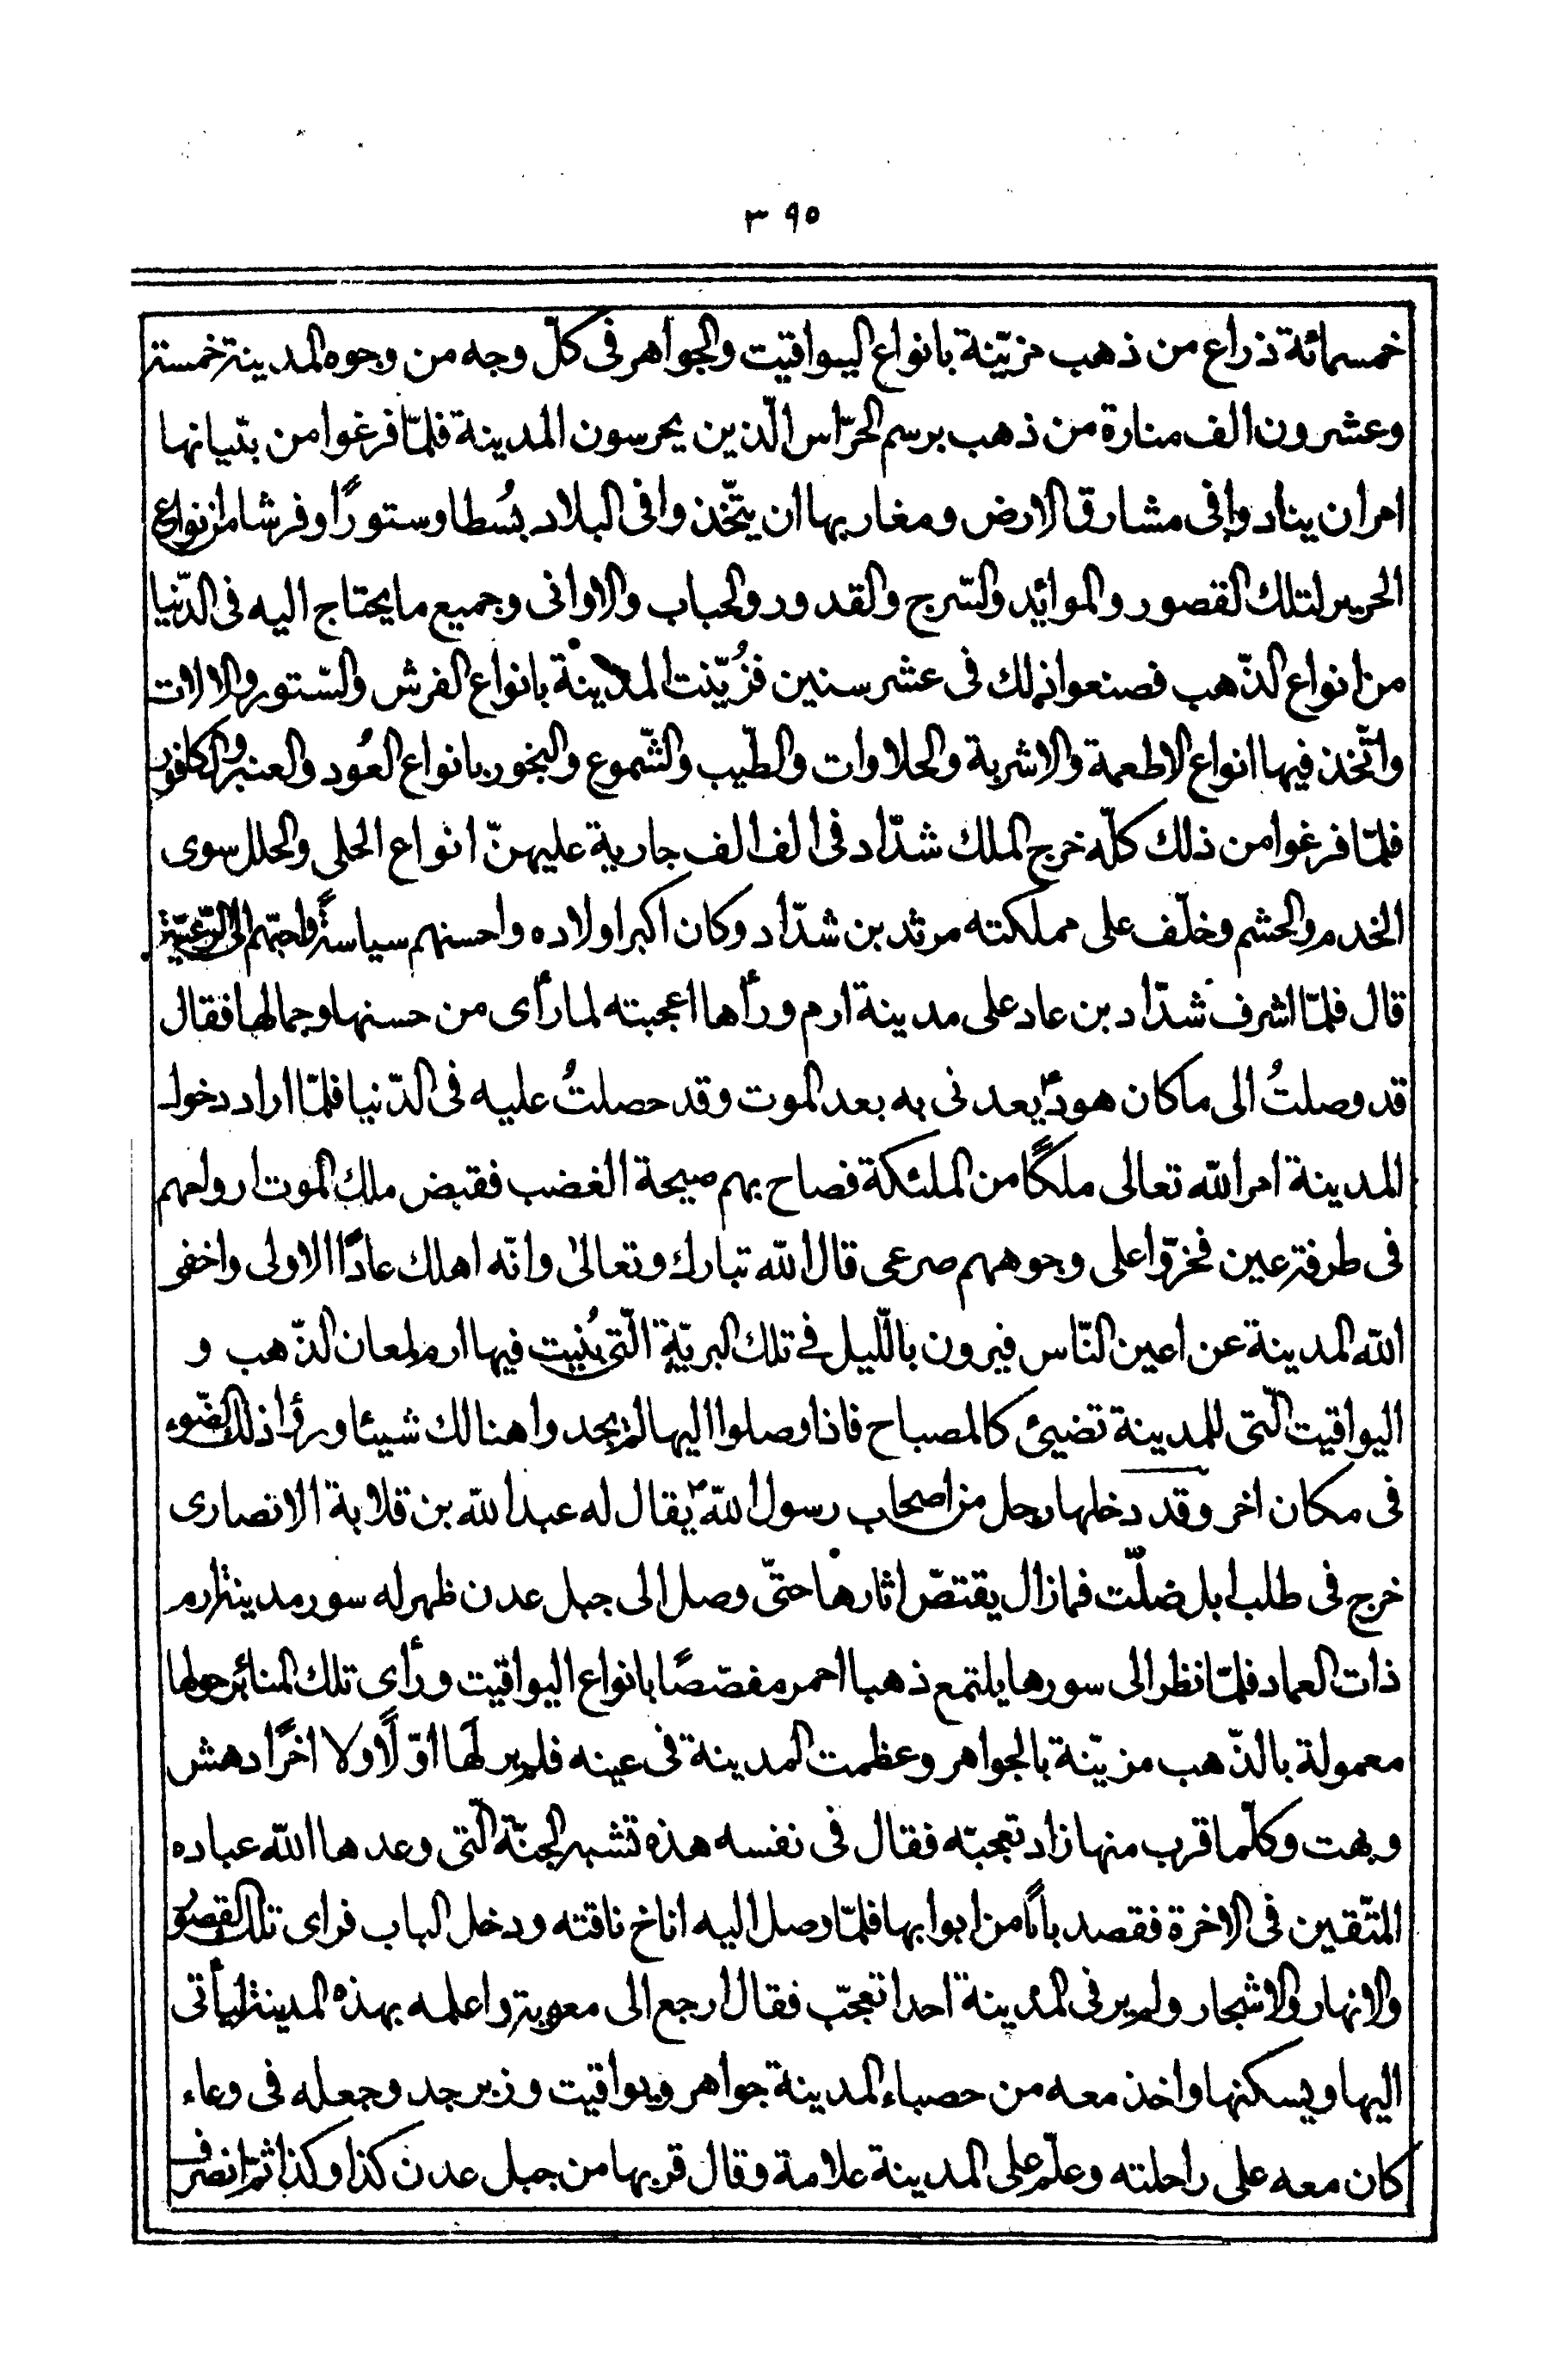 ٣٩٥
خمسمائة ذراع من ذهب مزيّنة بانواع اليواقيت والجواهر فى كلّ وجه من وجوه المدينة خمسة
وعشرون الف منارة من ذهب برسم الحرّاس الّذين يحرسون المدينة فلمّا فرغوا من بنيانها
امر ان ينادوا فى مشارق الارض ومغاربها ان يتّخذوا فى البلاد بُسُطا وستورًا وفرشا من انواع
الحرير لتلك القصور والموائد والسّرج والقدور والحباب والاوانى وجميع ما يحتاج اليه فى الدّنيا
من انواع الذّهب فصنعوا ذلك فى عشر سنين فزُيّنت المدينة بانواع الفرش والسّتور والالات
واتّخذ فيها انواع الاطعمة والاشربة والحلاوات والطّيب والشّموع والبخور بانواع العُود والعنبر والكافور
فلمّا فرغوا من ذلك كلّه خرج الملك شدّاد فى الف الف جارية عليهنّ انواع الحلى والحلل سوى
الخدم والحشم وخلّف على مملكته مرثد بن شدّاد وكان اكبر اولاده واحسنهم سياسةً واحبّهم الى الرّعيّة
قال فلمّا اشرف شدّاد بن عاد على مدينة ارم ورأها اعجبته لما رأى من حسنها وجمالها فقال
قد وصلتُ الى ما كان هودٌ يعدنى به بعد الموت وقد حصلتُ عليه فى الدّنيا فلمّا اراد دخول
المدينة امر الله تعالى ملكًا من الملئكة فصاح بهم صيحة الغضب فقبض ملك الموت ارواحهم
فى طرفة عين فخرّوا على وجوههم صرعى قال الله تبارك وتعالى وانّه اهلك عادًا الاولى واخفى
الله المدينة عن اعين النّاس فيرون باللّيل فى تلك البريّة الّتى بُنيت فيها ارم لمعان الذّهب و
اليواقيت الّتى للمدينة تضيئ كالمصباح فاذا وصلوا اليها لم يجدوا هنالك شيئا ورأوا ذلك الضّوء
فى مكان اخر وقد دخلها رجل من اصحاب رسول الله ص يقال له عبد الله بن قلابة الانصارى
خرج فى طلب ابل ضلّت فمازال يقتصّ اثارها حتّى وصل الى جبل عدن ظهر له سور مدينة ارم
ذات العماد فلمّا نظر الى سورها يلتمع ذهبا احمر مفصّصًا بانواع اليواقيت ورأى تلك المنائر حولها
معمولة بالذّهب مزيّنة بالجواهر وعظمت المدينة فى عينه فلم ير لَها اوّلًا ولا اخرًا دهش
وبهت وكلّما قرب منها زاد تعجبّه فقال فى نفسه هذه تشبه الجنّة الّتى وعدها الله عباده
المتّقين فى الاخرة فقصد بابًا من ابوابها فلمّا وصل اليه اناخ ناقته ودخل الباب فراى تلك القصور
والانهار والاشجار ولم ير فى المدينة احدا تعجّب فقال ارجع الى معوية واعلمه بهذه المدينة ليأتى
اليها ويسكنها واخذ معه من حصباء المدينة جواهر ويواقيت وزبرجد وجعله فى وعاء
كان معه على راحلته وعلّم على المدينة علامة وقال قربها من جبل عدن كذا وكذا ثمّ انصرف